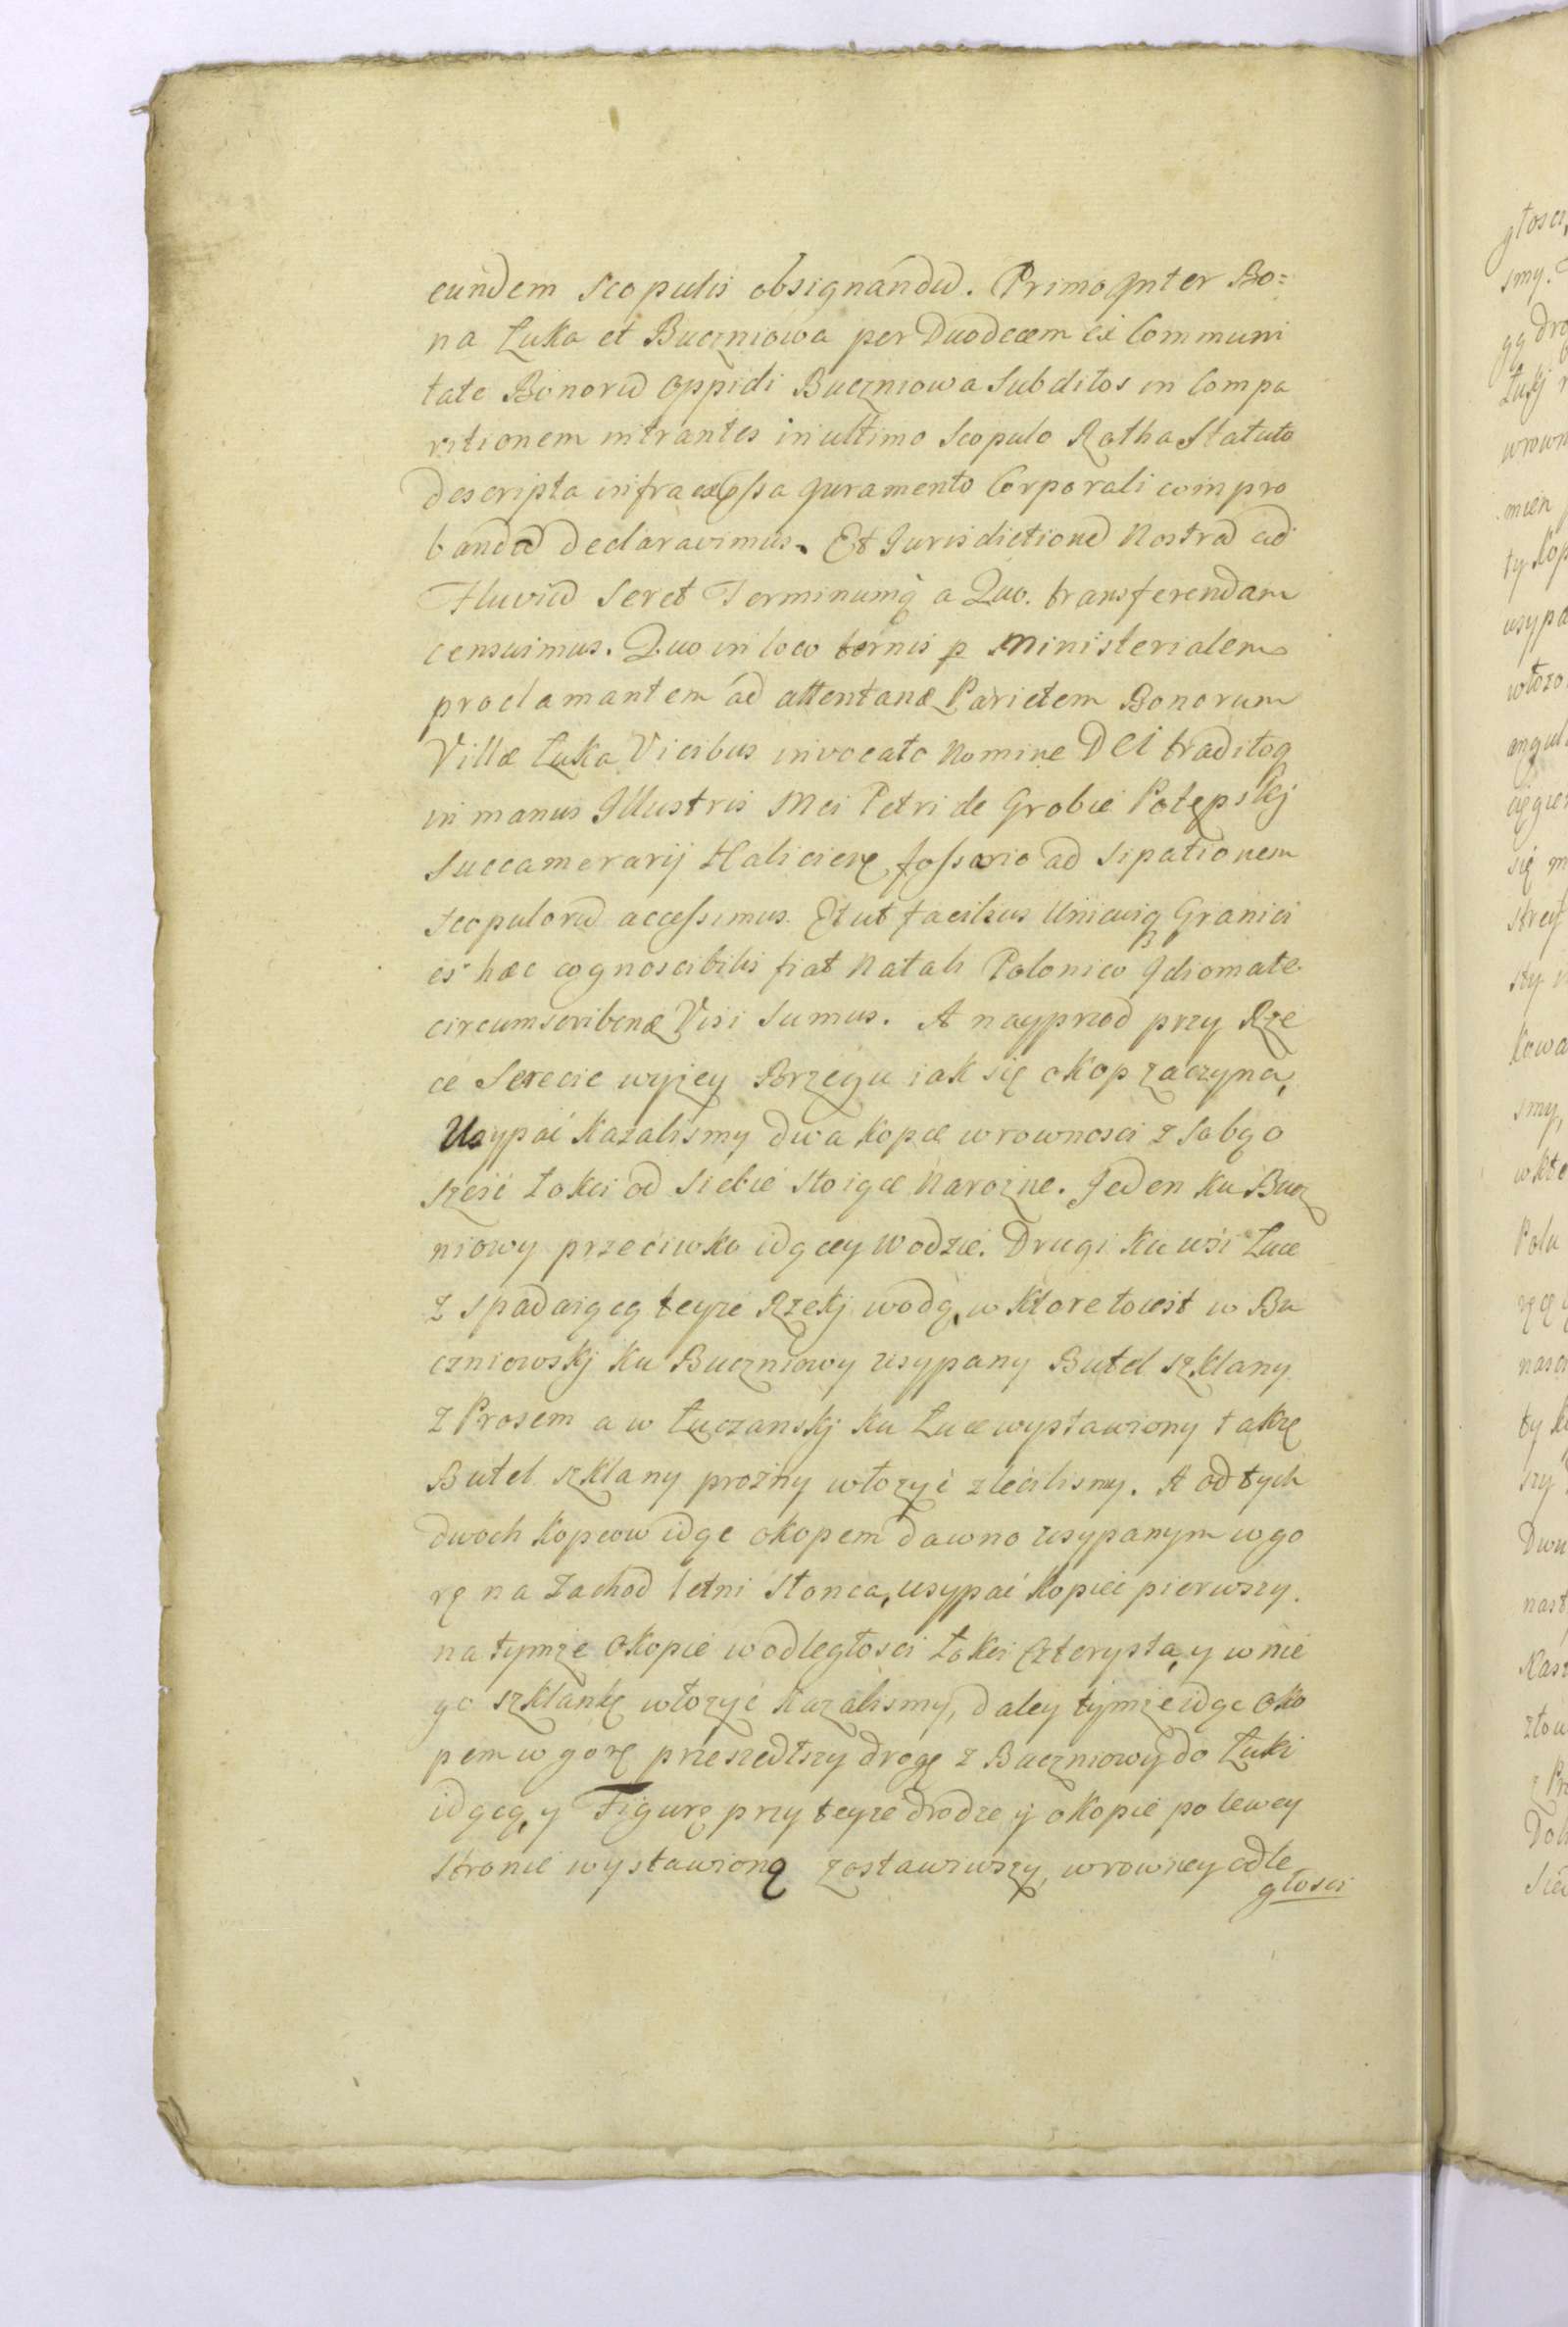 eundem Scopulis obsignandũ. Primo Inter Bo=
na Łuka et Buczniowa per Duodecem ex Communi
tate Bonorũ Oppidi Buczniowa Subditos in Compa
ritionem intrantes in ultimo Scopulo Rotha Statuto
descripta infra Juramento Corporali compro
bandũ declaravimus. Et Jurisdictionẽ Nostrã ad
Fluviũ Seret Terminumq̃ a Quo. transferendam
censuimus. Quo in loco ternis p Ministerialem
proclamantem ad attentanđ Parietem Bonorum
Villæ Łuka Vicibus invocato Nomine DEI traditoq
in manus Illustris Mci Petri de Grobie Potępskj
Succamerarij Haliciens fossorio ad Sipationem
Scopulorũ accessimus. Et ut facilius Unicuiq Granici
es hæc cognoscibilis fiat Natali Polonico Idiomate
circumscribenđ Visi Sumus. A nayprzod przy Rze
ce Serecie wyżey Brzegu iak się okop zaczyna,
Usypać Kazalismy dwa Kopce w rownosci z Sobą o
szesć łokci od Siebie Stoiące Narożne. Jeden Ku Bucz
niowy przeciwko idącey Wodzie. Drugi Ku wsi Łuce
z spadaiącą teyże Rzekj wodą, w Ktore to iest w Bu
czniowskj Ku Buczniowy usypany Butel szklany
z Prosem a w Łuczanskj Ku Łuce wystawiony takze
Butel szklany prożny włożyć zlecilismy. A od tych
dwoch Kopcow idąc okopem dawno usypanym w go
rę na Zachod letni Słonca, usypać Kopiec pierwszy.
na tymże Okopie w odległosci łokci Czterysta, y w nie
go szklankę włożyć Kazalismy, daley tymże idąc Oko
pem w gorę przeszedłszy drogę z Buczniowy do Łuki
idącą, y Figurę przy teyże drodze y okopie po lewey
Stronie wystawioną zostawiwszy, w rowney odle
głosci